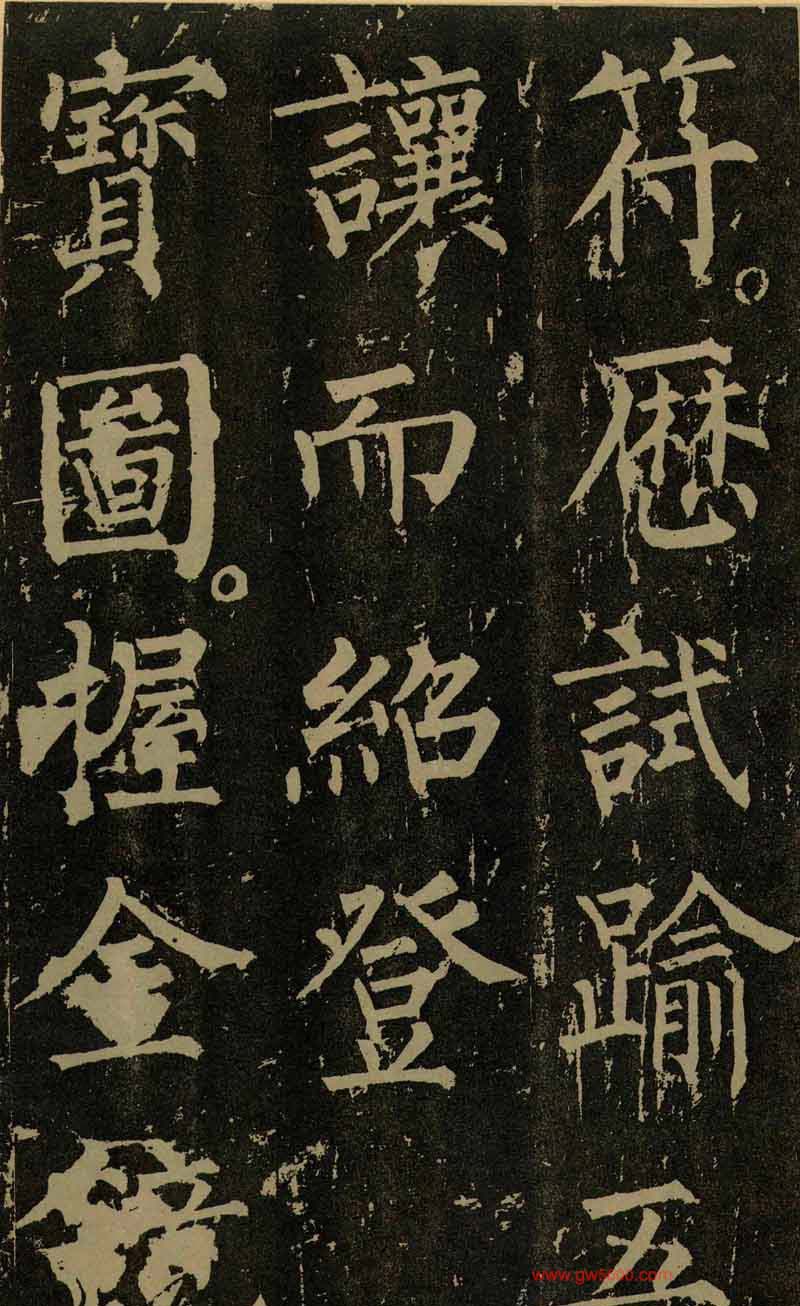 符。歴試踰五
讓而紹登
寶圖。握金鏡
www.gw5000.com